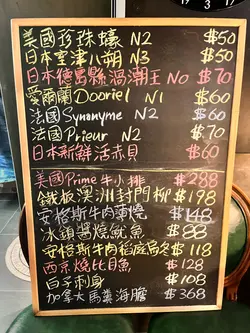 美國珍珠蠔 N2 $50
日本室津八朔 N3 $50
日本德島縣渦潮王 No $70
愛爾蘭Dooriel N1 $60
法國Synonyme N2 $60
法國Prieur N2 $70
日本新鮮活赤貝 $60
美國Prime牛小排 $288
鐵板澳洲封門柳 $198
安格斯牛肉薄燒 $148
冰鎮醬燒魷魚 $88
安格斯牛肉稻庭烏冬 $118
西京燒比目魚 $128
白子刺身 $108
加拿大馬糞海膽 $368